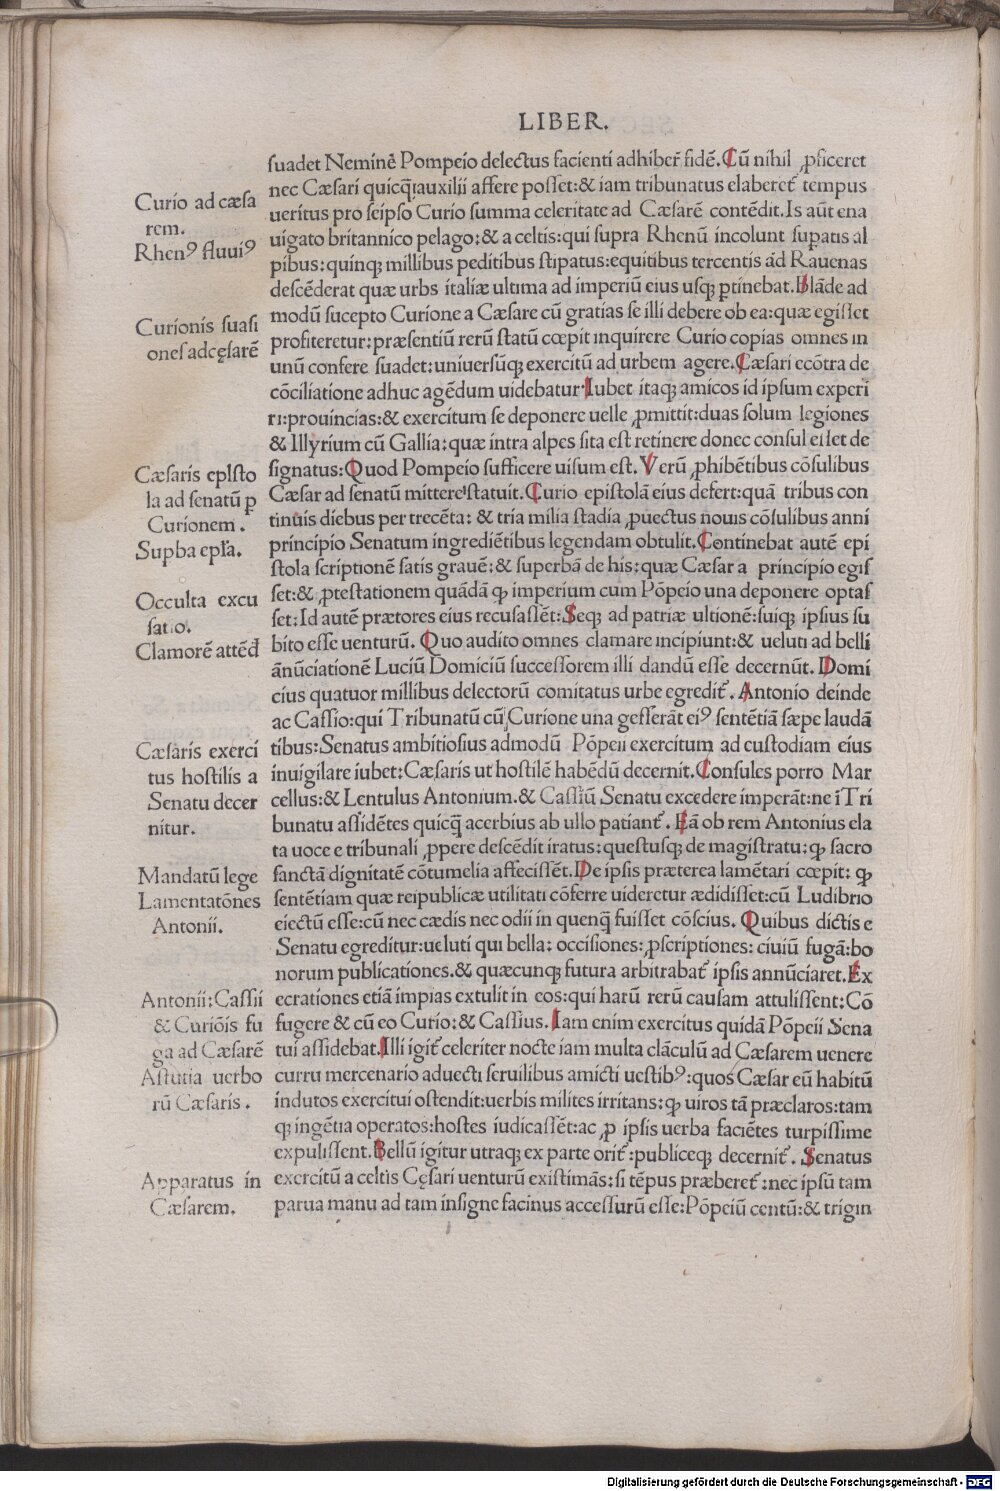 LIBER.
suadet Neminē Pompeio delectus facienti adhiber̄ fidē. Cū nihil ꝓficeret
nec Cæsari quicq̄ auxilii affere posset: & iam tribunatus elaberet᷑ tempus
ueritus pro seipso Curio summa celeritate ad Cæsarē contēdit. Is aūt ena
uigato britannico pelago: & a celtis: qui supra Rhenū incolunt supatis al
pibus: quinq; millibus peditibus stipatus: equitibus tercentis ad Rauenas
descēderat quæ urbs italiæ ultima ad imperiū eius usq; ꝑtinebat. Blāde ad
modū sucepto Curione a Cæsare cū gratias se illi debere ob ea: quæ egisset
profiteretur: præsentiū rerū statū cœpit inquirere Curio copias omnes in
unū confere suadet: uniuersūq; exercitū ad urbem agere. Cæsari ecōtra de
cōciliatione adhuc agēdum uidebatur. Iubet itaq; amicos id ipsum experi
ri: prouincias: & exercitum se deponere uelle ꝓmittit: duas solum legiones
& Illyrium cū Gallia: quæ intra alpes sita est retinere donec consul esset de
signatus: Quod Pompeio sufficere uisum est. Verū ꝓhibētibus cōsulibus
Cæsar ad senatū mittere statuit. Curio epistolā eius defert: quā tribus con
tinuis diebus per trecēta: & tria milia stadia ꝓuectus nouis cōsulibus anni
principio Senatum ingrediētibus legendam obtulit. Continebat autē epi
stola scriptionē satis grauē: & superbā de his: quæ Cæsar a principio egis
set: & ꝓtestationem quādā ꝙ imperium cum Pōpeio una deponere optas
set: Id autē prætores eius recusassēt: Seq; ad patriæ ultionē: suiq; ipsius su
bito esse uenturū. Quo audito omnes clamare incipiunt: & ueluti ad belli
ānūciationē Luciū Domiciū successorem illi dandū esse decernūt. Domi
cius quatuor millibus delectorū comitatus urbe egredit᷑. Antonio deinde
ac Cassio: qui Tribunatū cū Curione una gesserāt eiꝰ sentētiā sæpe laudā
tibus: Senatus ambitiosius admodū Pōpeii exercitum ad custodiam eius
inuigilare iubet: Cæsaris ut hostilē habēdū decernit. Consules porro Mar
cellus: & Lentulus Antonium. & Cassiū Senatu excedere imperāt: ne ī Tri
bunatu assidētes quicq̄ acerbius ab ullo patiant᷑. Eā ob rem Antonius ela
ta uoce e tribunali ꝓpere descēdit iratus: questusq; de magistratu: ꝙ sacro
sanctā dignitatē cōtumelia affecissēt. De ipsis præterea lamētari cœpit: ꝙ
sentētiam quæ reipublicæ utilitati cōferre uideretur ædidisset: cū Ludibrio
eiectū esse: cū nec cædis nec odii in quenq̄ fuisset cōscius. Quibus dictis e
Senatu egreditur: ueluti qui bella: occisiones: ꝓscriptiones: ciuiū fugā: bo
norum publicationes. & quæcunq; futura arbitrabat᷑ ipsis annūciaret. Ex
ecrationes etiā impias extulit in eos: qui harū rerū causam attulissent: Cō
fugere & cū eo Curio: & Cassius. Iam enim exercitus quidā Pōpeii Sena
tui assidebat. Illi igit᷑ celeriter nocte iam multa clāculū ad Cæsarem uenere
curru mercenario aduecti seruilibus amicti uestibꝰ: quos Cæsar eū habitū
indutos exercitui ostendit: uerbis milites irritans: ꝙ uiros tā præclaros: tam
q; ingētia operatos: hostes iudicassēt: ac ꝓ ipsis uerba faciētes turpissime
expulissent. Bellū igitur utraq; ex parte orit᷑: publiceq; decernit᷑. Senatus
exercitū a celtis Cęsari uenturū existimās: si tēpus præberet᷑: nec ipsū tam
parua manu ad tam insigne facinus accessurū esse: Pōpeiū centū: & trigin
Curio ad cæsa
rem.
Rhenꝰ fluuiꝰ
Curionis suasi
ones ad cęsarē
Cæsaris epīsto
la ad senatū ꝑ
Curionem.
Supba epl̄a.
Occulta excu
satio.
Clamorē attēd̄
Cæsaris exerci
tus hostilis a
Senatu decer
nitur.
Mandatū lege
Lamentatōnes
Antonii.
Antonii: Cassii
& Curiōis fu
ga ad Cæsarē
Astutia uerbo
rū Cæsaris.
Apparatus in
Cæsarem.
Digitalisierung gefördert durch die Deutsche Forschungsgemeinschaft - DFG